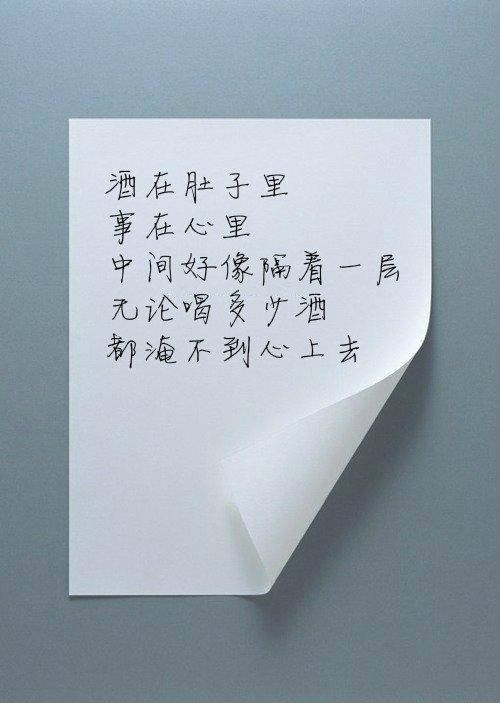 酒在肚子里
事在心里
中间好像隔着一层
无论喝多少酒
都淹不到心上去